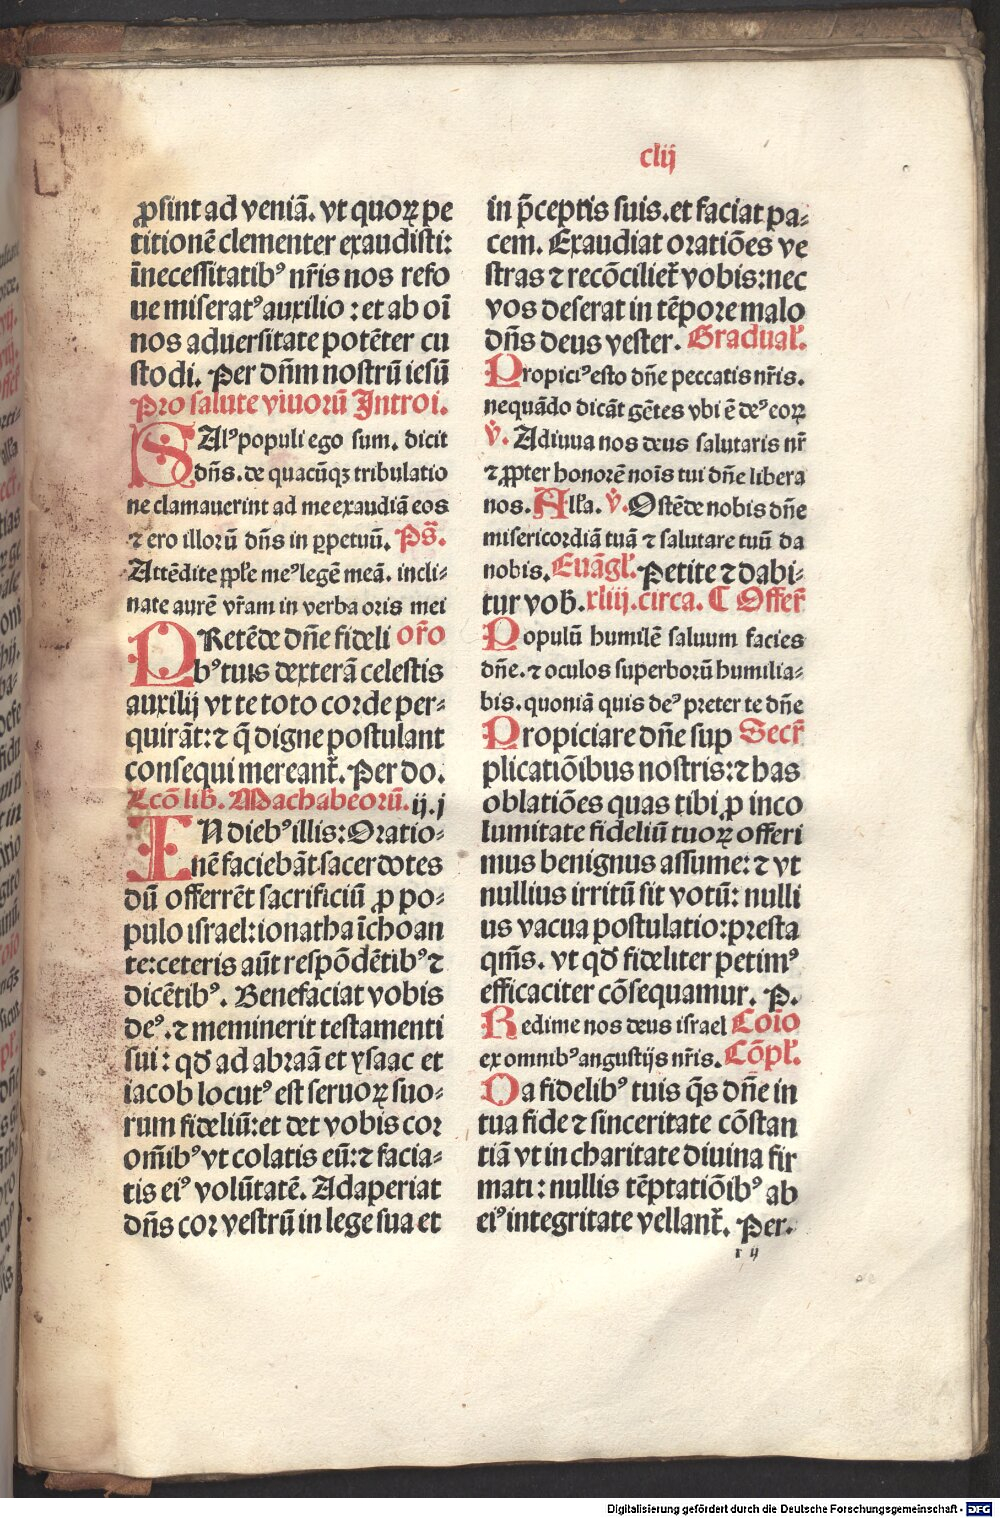 clij
ꝓsint ad veniā. vt quoꝝ pe
titionē clementer exaudisti:
īnecessitatibꝰ nr̄is nos refo
ue miseratꝰ auxilio : et ab oī
nos aduersitate potēter cu
stodi. Per dn̄m nostrū iesū
Pro salute viuorū Introi.
SAlꝰ populi ego sum. dicit
dn̄s. de quacūqꝫ tribulatio
ne clamauerint ad me exaudiā eos
⁊ ero illorū dn̄s in ꝑpetuū. Ps̄.
Attēdite pp̄le meꝰ legē meā. incli-
nate aurē vr̄am in verba oris mei
PRetēde dn̄e fideli or̄o
bꝰ tuis dexterā celestis
auxilij vt te toto corde per-
quirāt: ⁊ q̄ digne postulant
consequi mereant̄. Per do.
Lcō lib̄. Machabeorū. ij. j
IN diebꝰ illis: Oratio-
nē faciebāt sacerdotes
dū offerrēt sacrificiū ꝓ po-
pulo israel: ionatha īchoan
te: ceteris aūt respōdētibꝰ ⁊
dicētibꝰ. Benefaciat vobis
deꝰ. ⁊ meminerit testamenti
sui : qd̄ ad abraā et ysaac et
iacob locutꝰ est seruoꝝ suo-
rum fideliū: et det vobis cor
om̄ibꝰ vt colatis eū: ⁊ facia-
tis eiꝰ volūtatē. Adaperiat
dn̄s cor vestrū in lege sua et
in p̄ceptis suis. et faciat pa-
cem. Exaudiat oratiōes ve
stras ⁊ recōciliet̄ vobis: nec
vos deserat in tēpore malo
dn̄s deus vester. Gradual̄.
Propiciꝰ esto dn̄e peccatis nr̄is.
nequādo dicāt gētes vbi ē deꝰ eoꝝ
v̄. Adiuua nos deus salutaris nr̄
⁊ ꝓpter honorē noīs tui dn̄e libera
nos. All̄a. v̄. Ostēde nobis dn̄e
misericordiā tuā ⁊ salutare tuū da
nobis. Euāgl̄. Petite ⁊ dabi-
tur vob̄. xliij. circa. ¶ Offer̄
Populū humilē saluum facies
dn̄e. ⁊ oculos superborū humilia-
bis. quoniā quis deꝰ preter te dn̄e
Propiciare dn̄e sup Secr̄
plicatiōibus nostris: ⁊ has
oblatiōes quas tibi ꝓ inco
lumitate fideliū tuoꝝ offeri
mus benignus assume: ⁊ vt
nullius irritū sit votū: nulli
us vacua postulatio: presta
qm̄s. vt qd̄ fideliter petimꝰ
efficaciter cōsequamur. P.
Redime nos deus israel Coīo
ex omnibꝰ angustijs nr̄is. Cōpl̄.
Da fidelibꝰ tuis qs̄ dn̄e in
tua fide ⁊ sinceritate cōstan
tiā vt in charitate diuina fir
mati : nullis tēptatiōibꝰ ab
eiꝰ integritate vellant̄. Per.
r ij
Digitalisierung gefördert durch die Deutsche Forschungsgemeinschaft - DFG